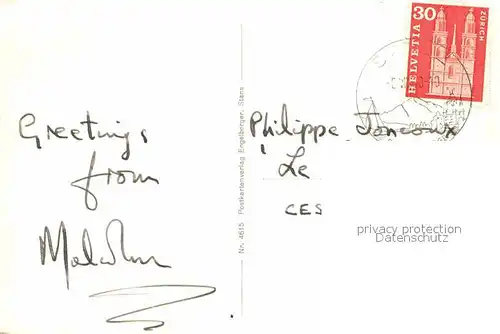 Greetings
from
Malcolm
Nr. 4615 Postkartenverlag Engelberger, Stans
30
HELVETIA
ZÜRICH
Philippe
Le
CES
privacy protection
Datenschutz